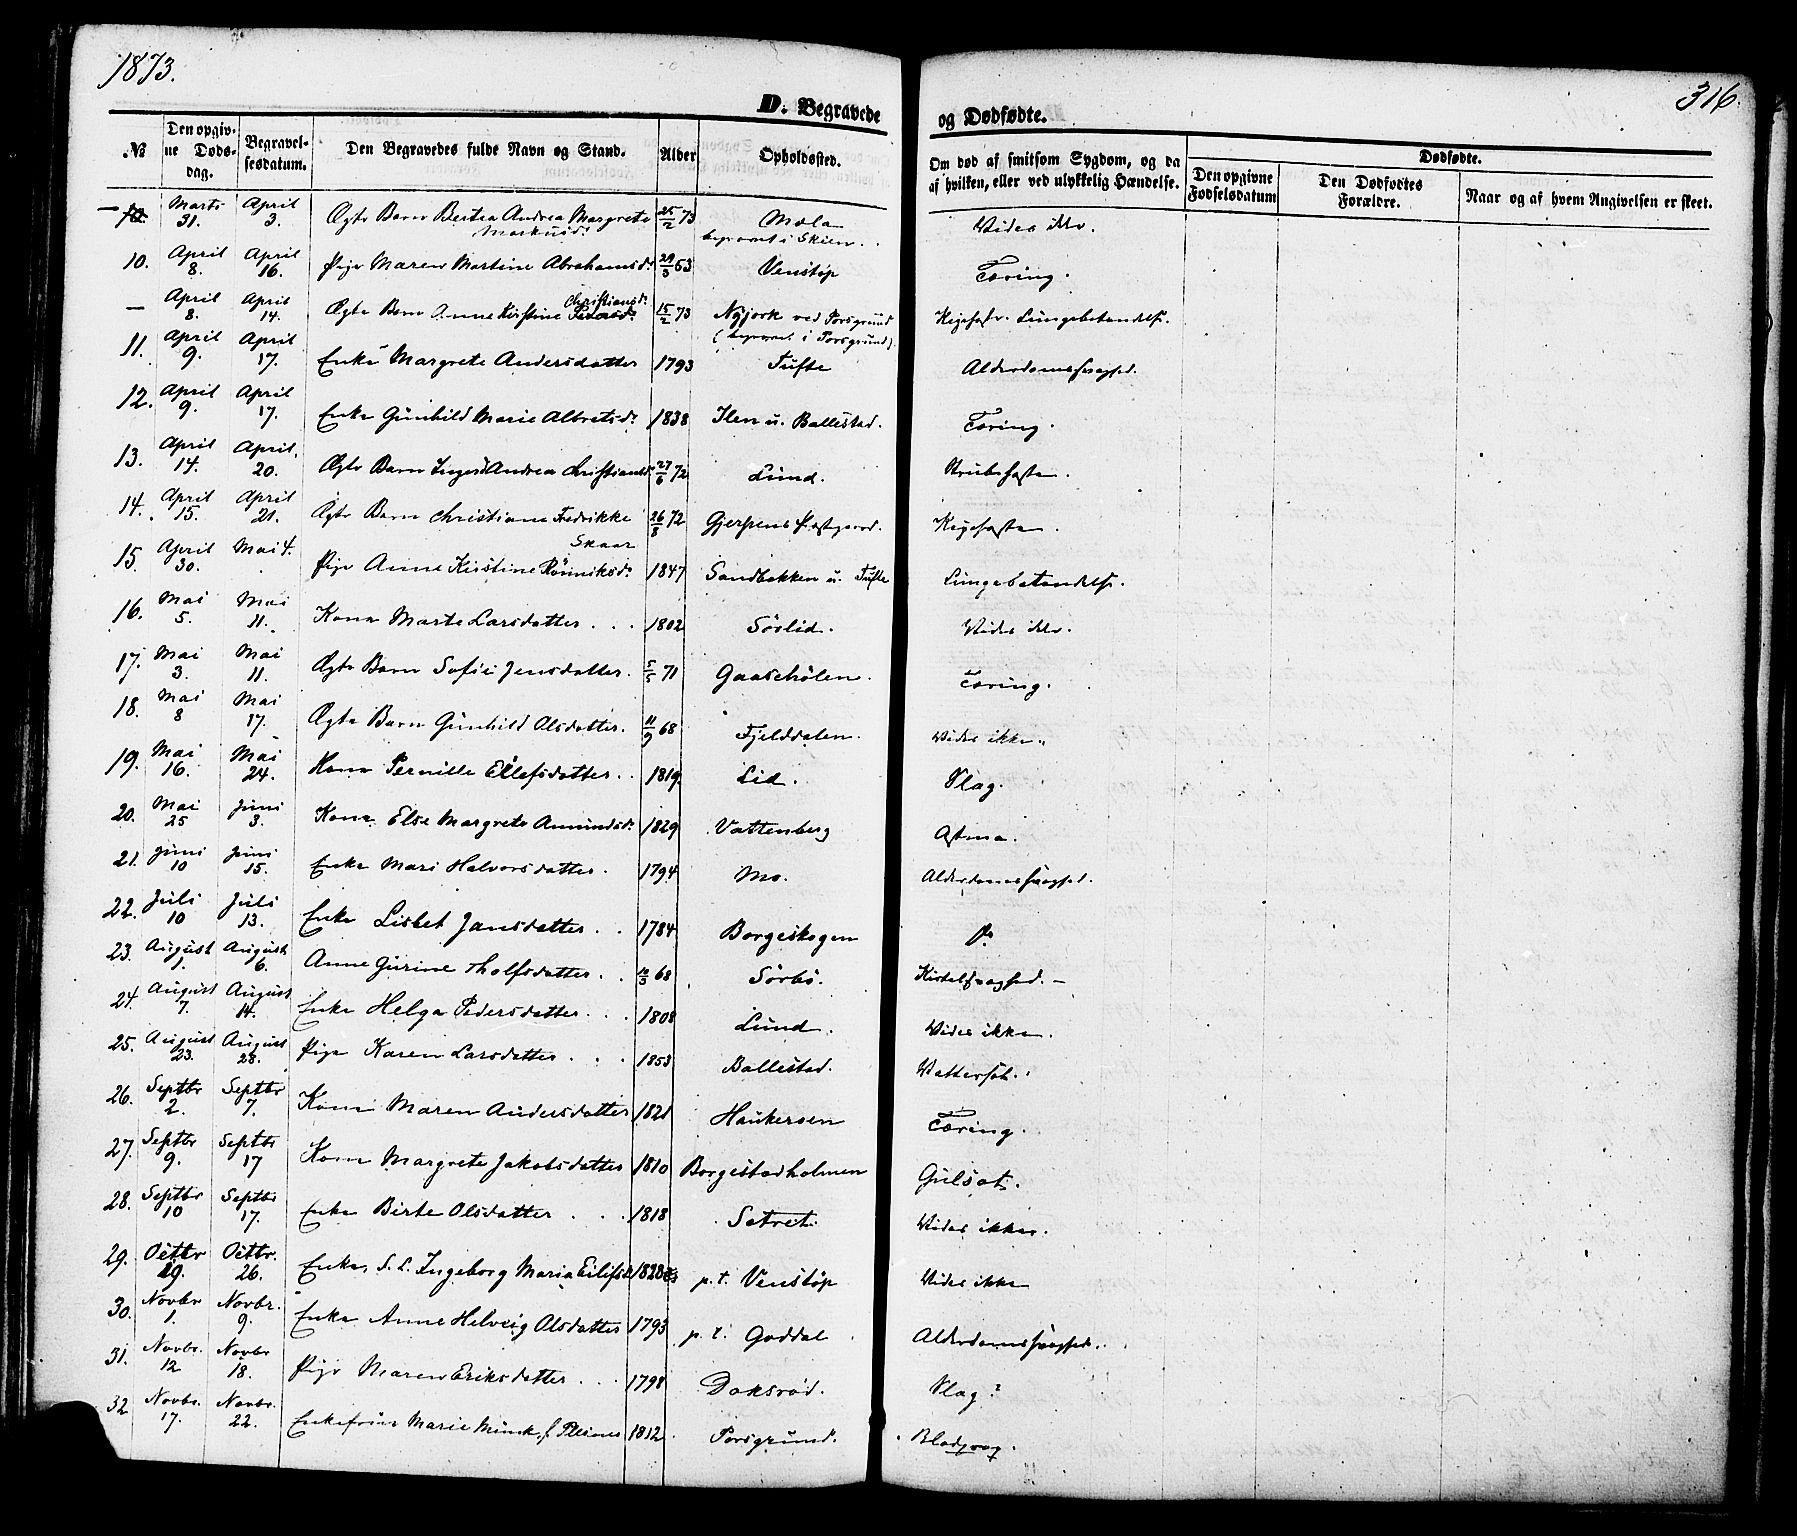 1873.
316.
D. Begravede og Dødfødte.
No
Den opgivne Dødsdag.
Begravelsesdatum.
Den Begravedes fulde Navn og Stand.
Alder
Opholdssted.
Om død af smitsom Sygdom, og da af hvilken, eller ved ulykkelig Hændelse.
Dødfødte.
Den opgivne Fødselsdatum
Den Dødfødtes Forældre.
Naar og af hvem Angivelsen er skeet.
— Marts 31. April 3. Ægte Barn Andrea Margrete 25/2 73 Mæla Vides ikke.
Markusd.
begravet i Skien.
10. April 8. April 16. Pige Maren Martine Abrahamsd. 29/3 53 Venstøp Tæring.
— April 8. April 14. Ægte Barn Anne Kirstine Christiansd. 15/2 73 Nyjork ved Porsgrund Lungebetændelse.
(begravet i Porsgrund).
11. April 9. April 17. Enke Margrete Andersdatter 1793 Tufte Alderdomssvaghed.
12. April 9. April 17. Enke Gunhild Marie Albretsd. 1838 Ilen u. Ballestad. Tæring.
13. April 14. April 20. Ægte Barn Andrea Christiansd. 27/6 72 Lund. Strubehoste.
14. April 15. April 21. Ægte Barn Christiane Fredrikke 26/8 72 Gjerpens Præstgaard. Kighoste.
Skaar
15. April 30. Mai 4. Pige Anne Kirstine 1847 Sandbakken u. Tufte Lungebetændelse.
16. Mai 5. Mai 11. Kone Marte Larsdatter . . . 1802 Sørlid. Vides ikke.
17. Mai 3. Mai 11. Ægte Barn Sofie Jensdatter. 5/5 71 Gaasehølen. Tæring.
18. Mai 8 Mai 17. Ægte Barn Gunhild Olsdatter. 11/9 68 Fjelddalen. Vides ikke.
19. Mai 16. Mai 24. Kone Pernille Ellefsdatter. . 1819. Lid. Slag.
20. Mai 25 Juni 3. Kone Else Margrete Amundsd. 1829 Vattenberg Astma.
21. Juni 10 Juni 15. Enke Mari Halvorsdatter. 1794 Mo. Alderdomssvaghed.
22. Juli 10 Juli 13. Enke Lisbet Jansdatter. . 1784 Borgeskogen Do
23. August 1. August 6. Anne Gurine Tholfsdatter. . 68 Sørbø. Kirtelsvaghed. —
24. August 7. August 14. Enke Helga Pedersdatter. . . 1808 Lund. Vides ikke.
25. August 23. August 28. Pige Karen Larsdatter . . . 1853 Ballestad. Vattersot.
26. Septbr 2. Septbr 7. Kone Maren Andersdatter 1821 Haukersen Tæring.
27. Septbr 9. Septbr 17 Kone Margrete Jakobsdatter 1810 Borgestadholmen Gulsot.
28. Septbr 10 Septbr 17. Enke Birte Olsdatter . . . 1818 Sætret. Vides ikke.
29. Octbr 19. Octbr. 26. Enke, S. L. Ingeborg Maria Eilifsd. 1828 p. t. Venstøp Vides ikke
30. Novbr 1. Novbr. 9. Enke Anne Helvig Olsdatter 1793 p. t. Goddal Alderdomssvaghed.
31. Novbr. 12 Novbr 18. Pige Maren Eriksdatter. . . 1798 Doksrød. Slag?
32 Novbr. 17. Novbr. 22. Enkefrue Marie Munk, f. 1812. Porsgrund.